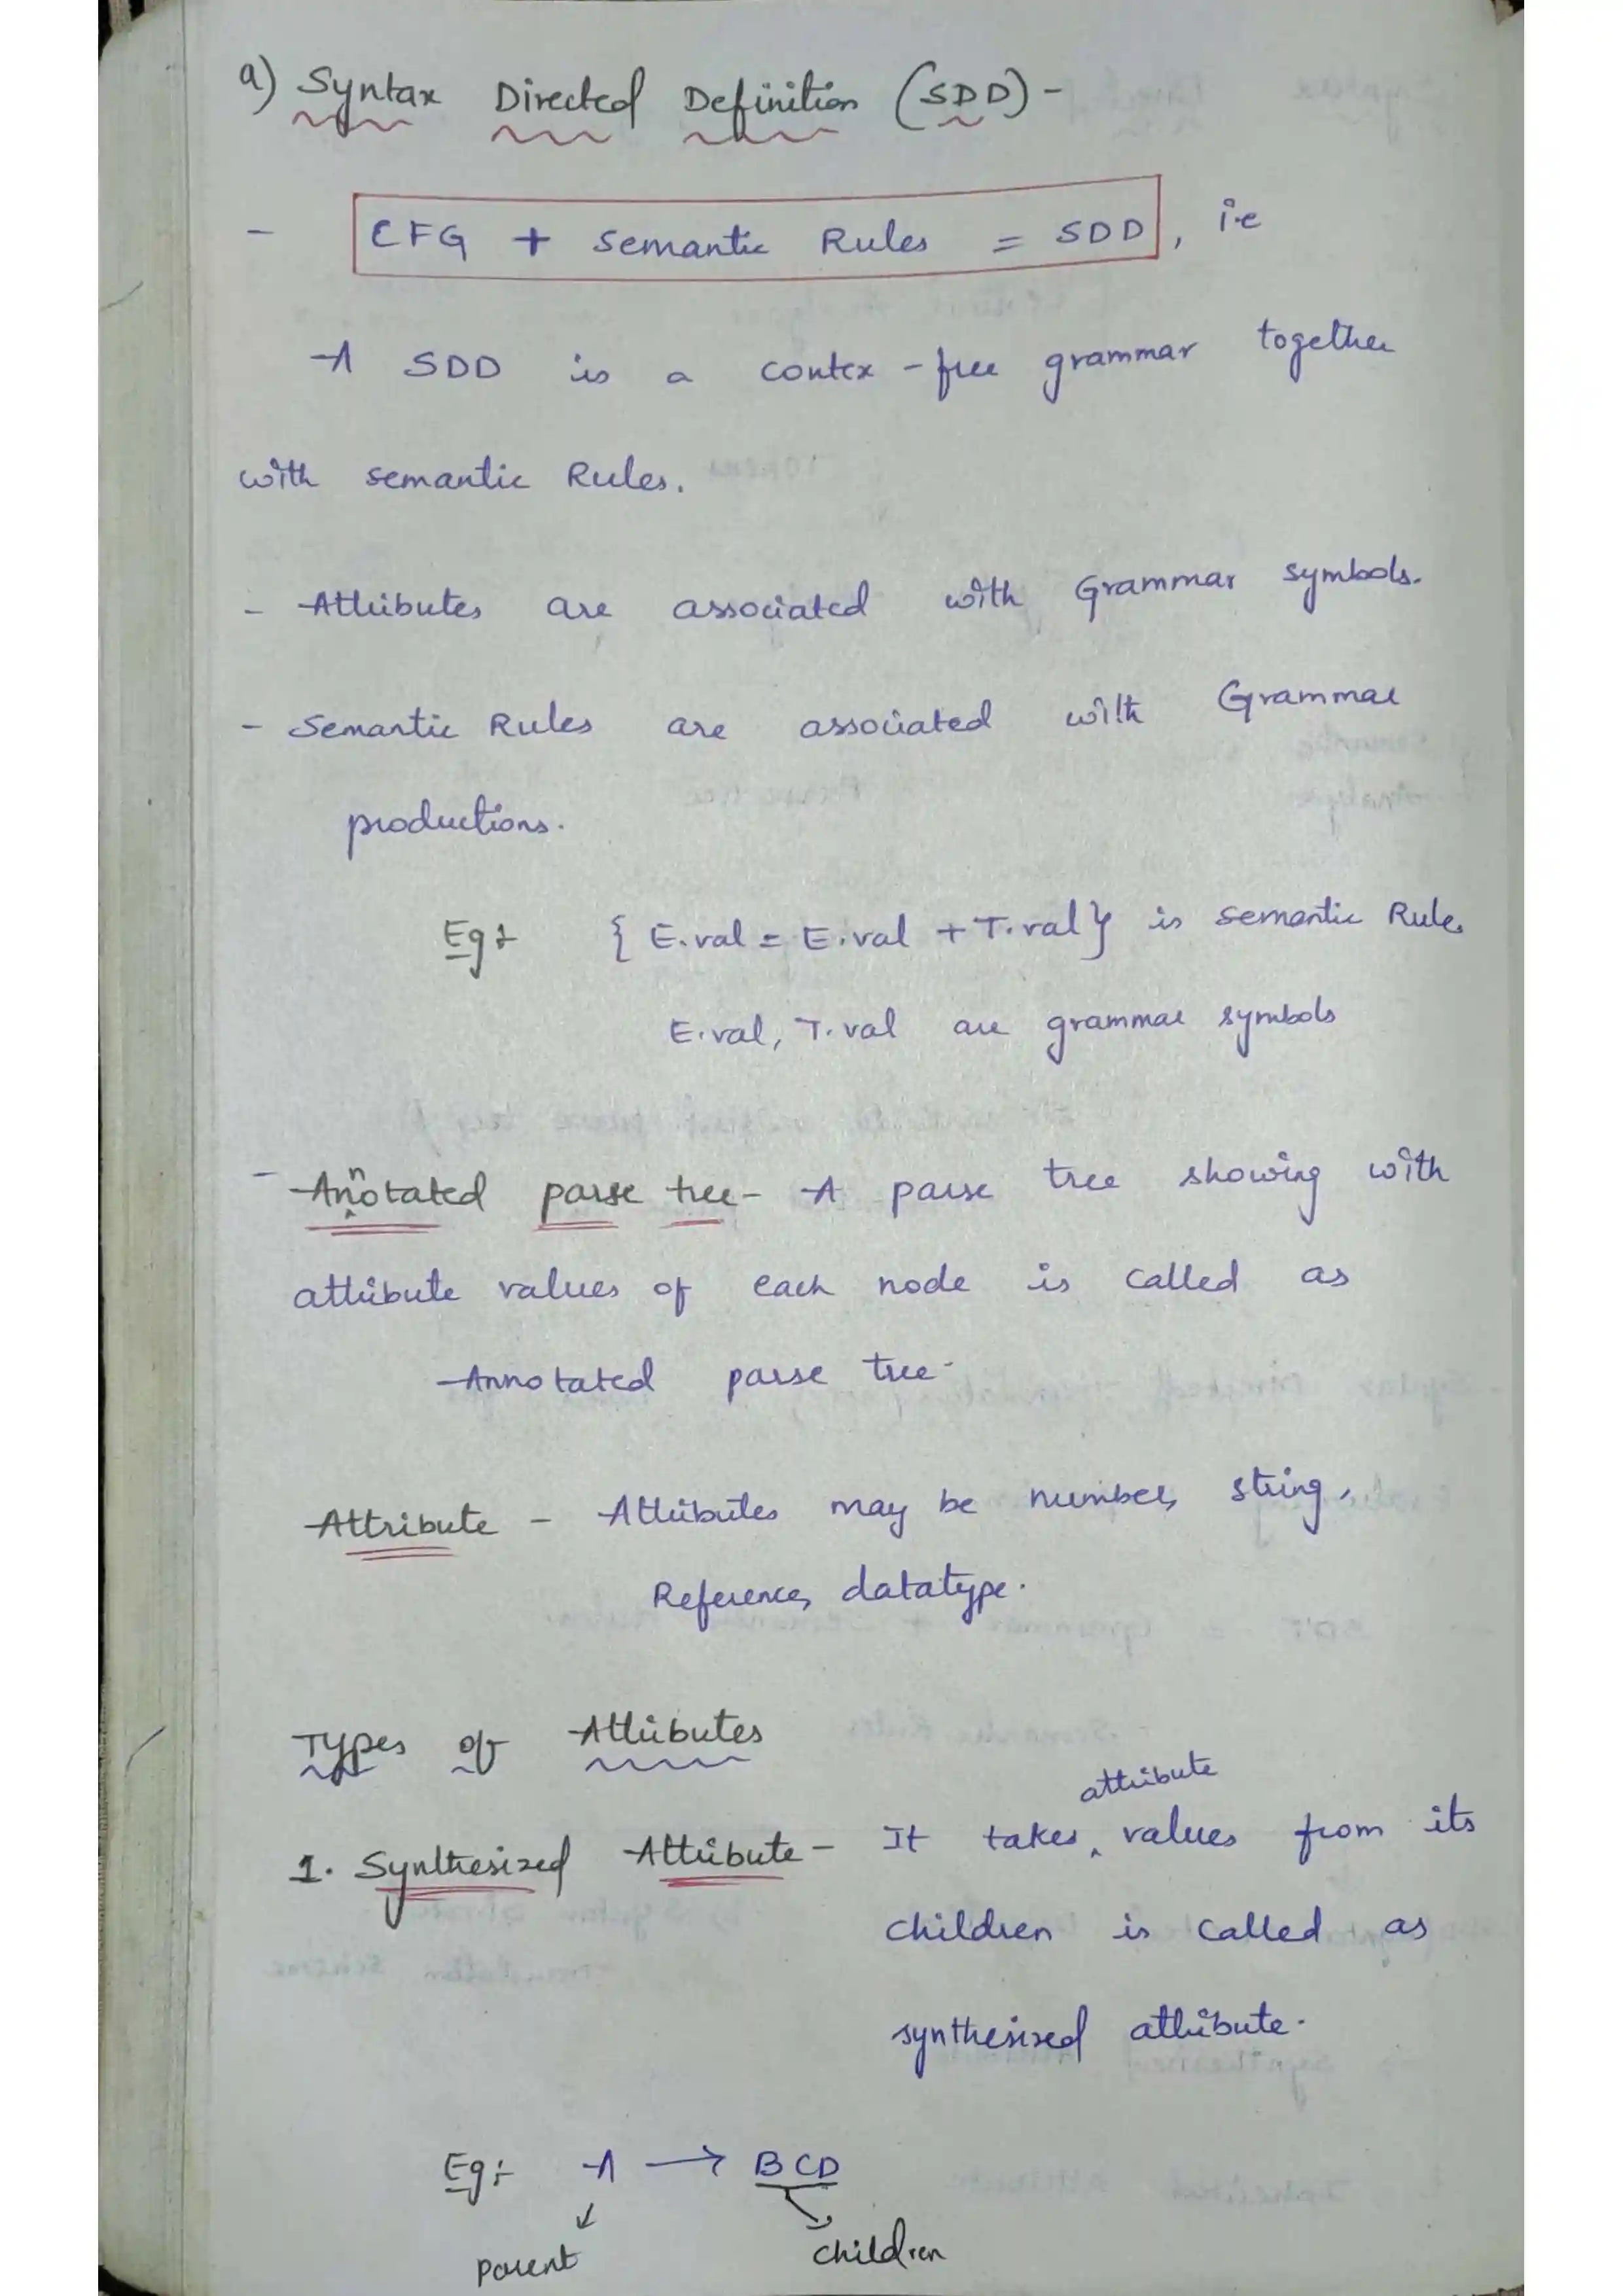 a) Syntax Directed Definition (SDD) -
- CFG + Semantic Rules = SDD, i.e
A SDD is a contex-free grammar together
with semantic Rules.
- Attributes are associated with Grammar symbols.
- Semantic Rules are associated with Grammar
productions.
Eg:- { E.val = E.val + T.val } is semantic Rule.
E.val, T.val are grammar symbols
- Annotated parse tree - A parse tree showing with
attribute values of each node is called as
Annotated parse tree.
Attribute - Attributes may be number, string,
Reference, datatype.
Types of Attributes
1. Synthesized Attribute - It takes attribute values from its
children is called as
synthesized attribute.
Eg:- A → BCD
parent children